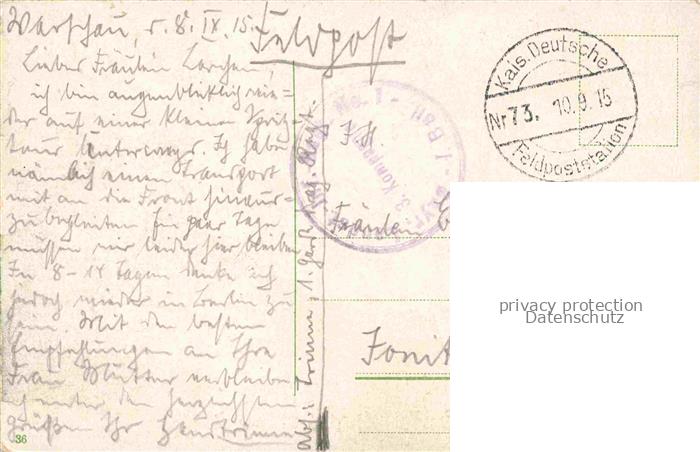 Warschau, d. 8. IX. 15.
Feldpost
Liebes Fräulein Lorchen,
ich bin augenblicklich wie=
der auf einer kleinen Spritz=
tour unterwegs. Ich habe
nämlich einen Transport
mit an die Front hinaus=
zubegleiten. Ein paar Tage
müssen wir leider hier bleiben
In 8-14 Tagen denke ich
jedoch wieder in Berlin zu
sein. Mit den besten
Empfehlungen an Ihre
Frau Mutter verbleibe
ich unter den herzlichsten
Grüßen Ihr
36
Abs.:
Fräulein
Kais. Deutsche
Nr 73. 10.9.15
Feldpoststation
3. Komp
privacy protection
Datenschutz